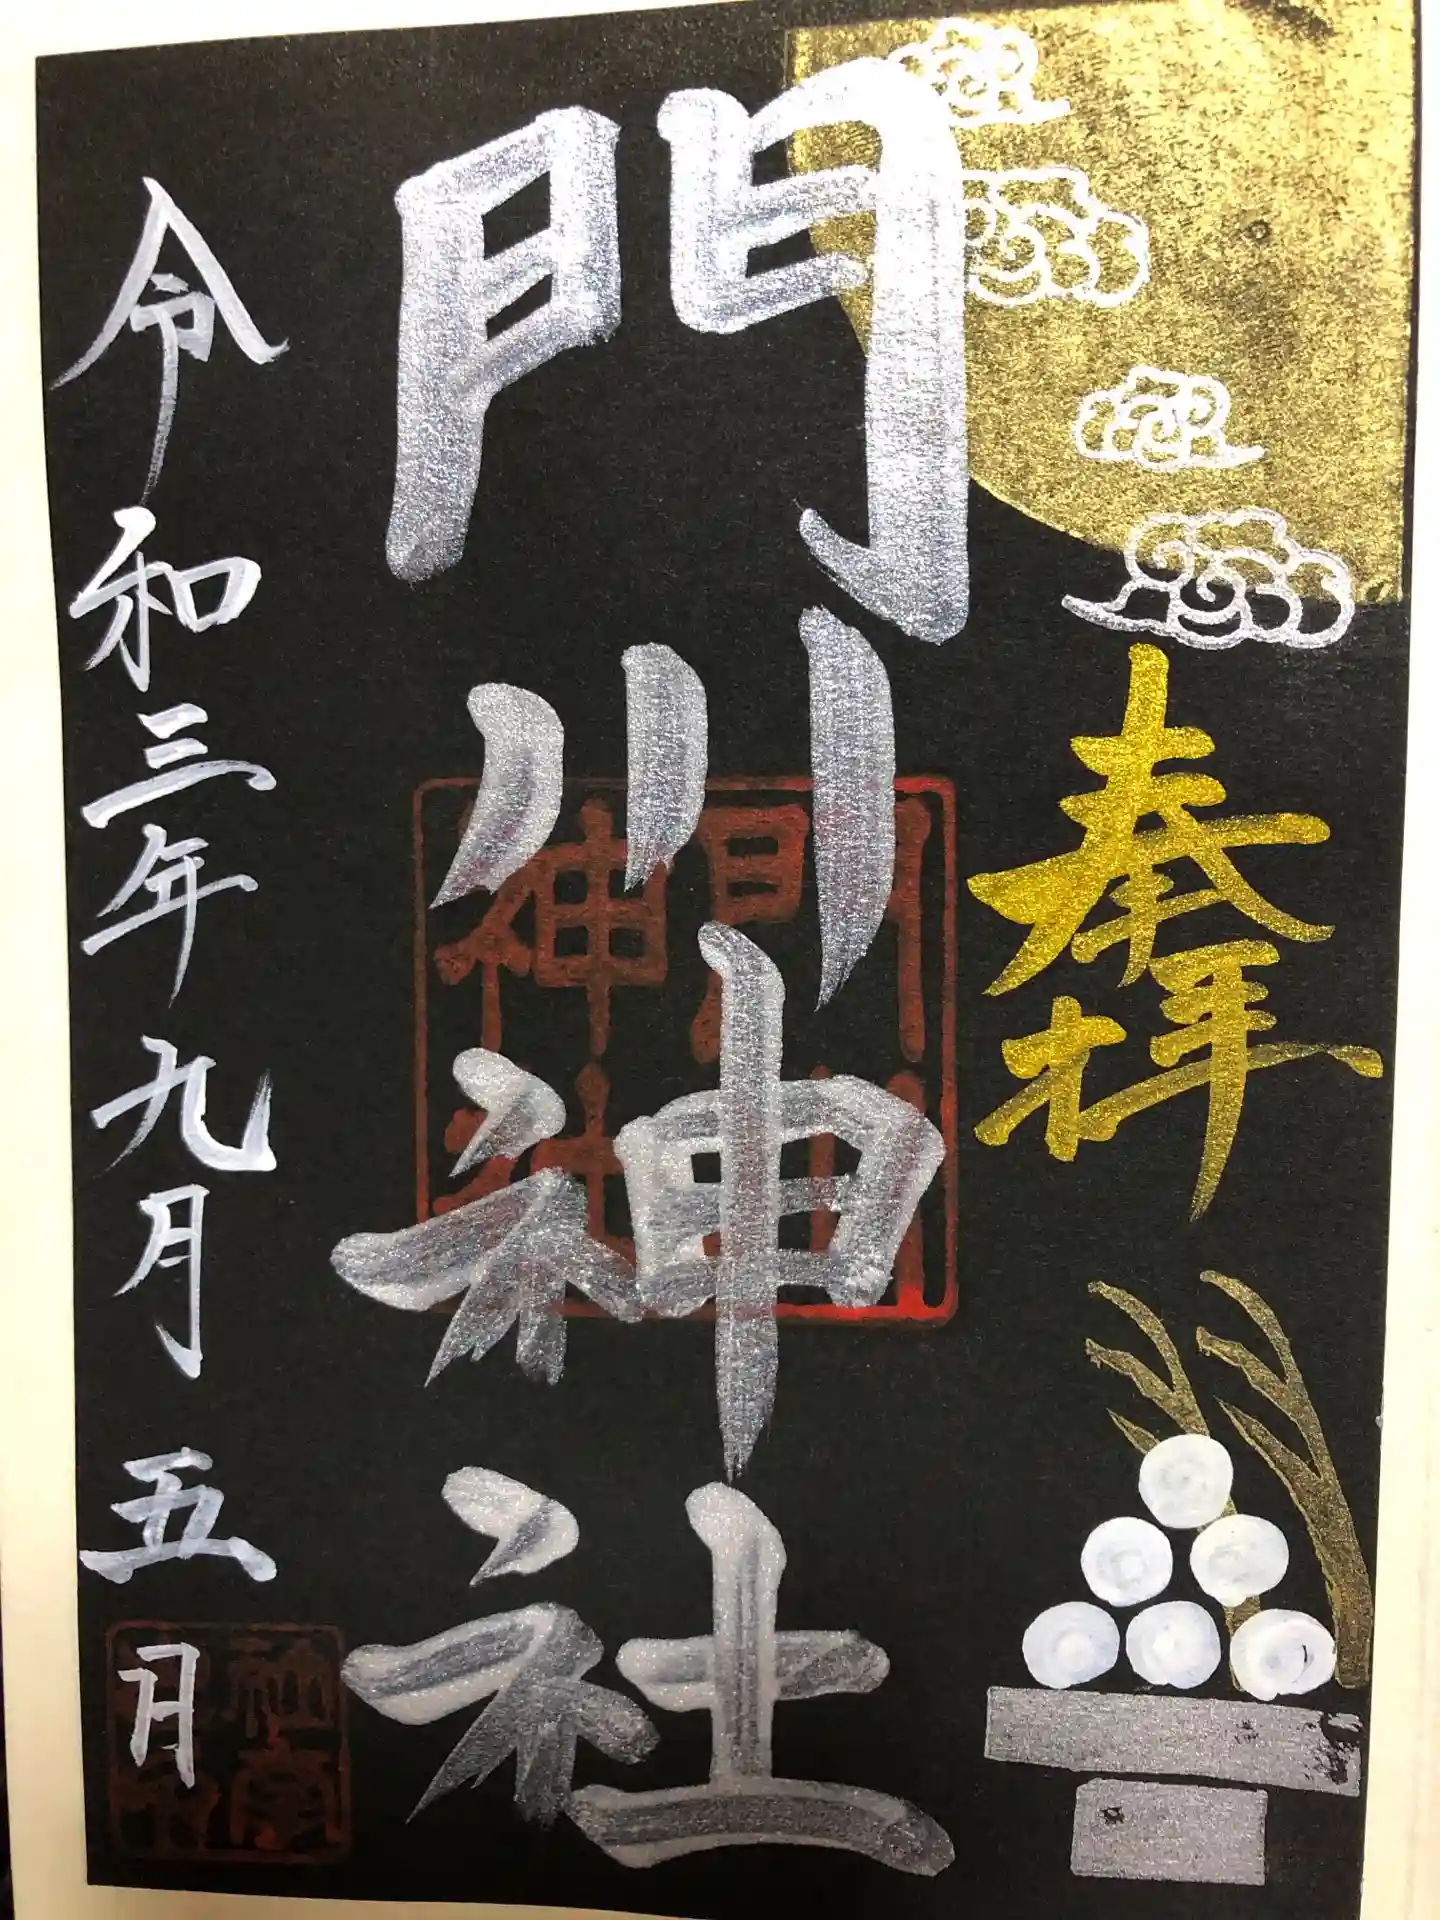 奉拝
門川神社
門川
神社
令和三年九月五日